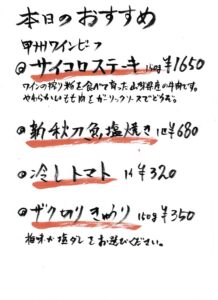 本日のおすすめ
甲州ワインビーフ
サイコロステーキ 150g ¥1650
ワインの搾り粕を食べて育った山梨県産の牛肉です。
やわらかいもも肉をガーリックソースでどうぞ。
新秋刀魚塩焼き 1尾 ¥680
冷しトマト 1ヶ ¥320
ザク切りきゅうり 150g ¥350
梅味か塩ダレをお選びください。